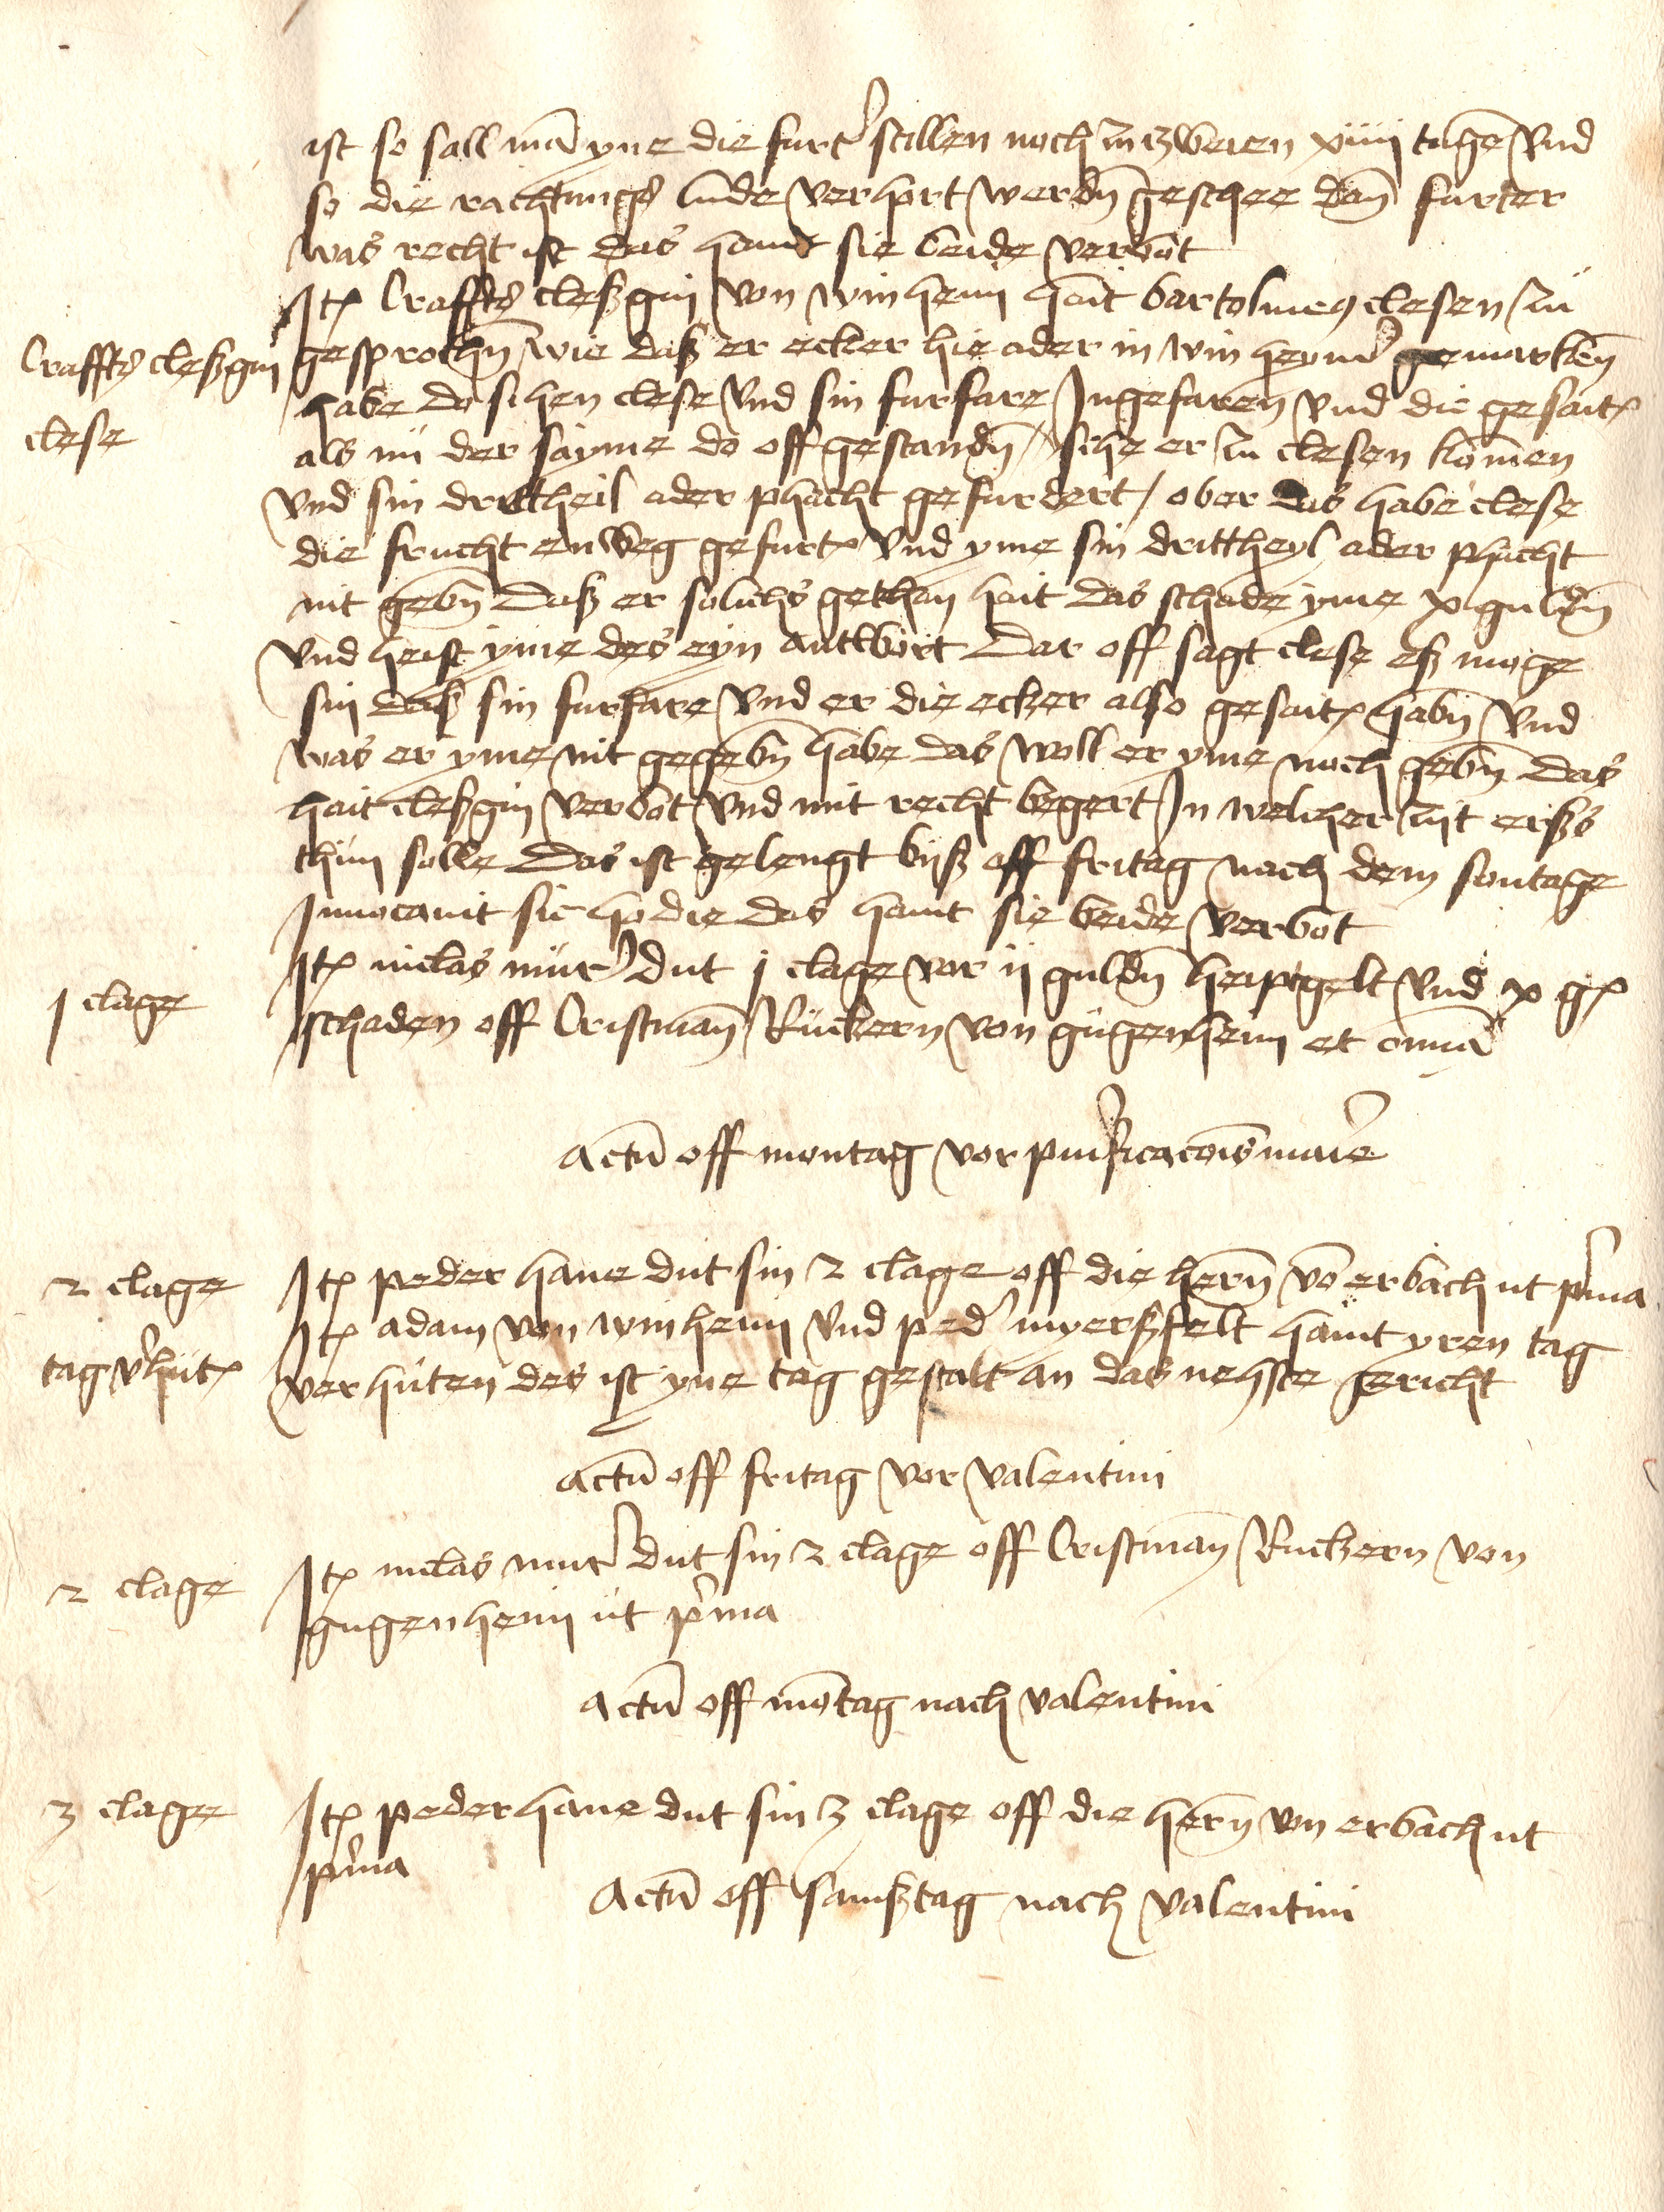 ist so sall mā yne die furt' stillen noch in zweien xiiii tagē und
so die rachtungs lude verhort werdn̄ geschee dan̄ furter
was recht ist das haint sie beide verbot
Itꝫ Craffts cleßgin von winheim hait bartolmeꝰ clesen zu
Craffts cleßgin
clese
gesprochn̄ wie daß er ecker hie ader in winheym' gemarken̄
habe do sihen clese und sin furfare Ingefaren̄ und die gesaitꝫ
als nü der sayme do off gestandn̄ / sihe er zu clesen kōmen
und sin drittheil ader phacht gefurdert / ober das habe clese
die frucht enweg gefurtꝫ und yme sin drittheyl ader phacht
nit gebn̄ daß er solichs gethan hait das schade yme x guldn̄
und heist yme des eyn antwort Dar off sagt clese eß moge
sin daß sin furfare und er die ecker also gesaitꝫ habn̄ und
was er yme nit gegebn̄ habe das woll er yme noch gebn̄ das
hait cleßgin verbot und mit recht begert In welicher zijt erßs
thun solle Das ist gelengt biß off fritag nach dem sontage
Invocavit sic hodie das haint sie beide verbot
1 clage
Itꝫ niclas mur' dut j clage vor ij guldn̄ heiptgelt und x gꝫ
schaden off Cristman̄ Ruckern von gugenheim et om̄ia
Actū off montag vor pur'ficacōis mar'e
2 clage
Itꝫ peder hane dut sin 2 clage off die hern̄ vō erbach ut p'ma
Itꝫ adam von winheim und ped' myerßfelt haint yren tag
tag v'hutꝫ
verhüten des ist yne tag gestalt an das nehste gericht
Actū off fritag vor valentini
2 clage
Itꝫ niclas mur' dut sin 2 clage off Cristman̄ Ruckern von
gugenheim ut p'ma
Actū off mōtag nach valentini
3 clage
Itꝫ peder hane dut sin 3 clage off die hern̄ von erbach ut
p'ma
Actū off samßtag nach valentini